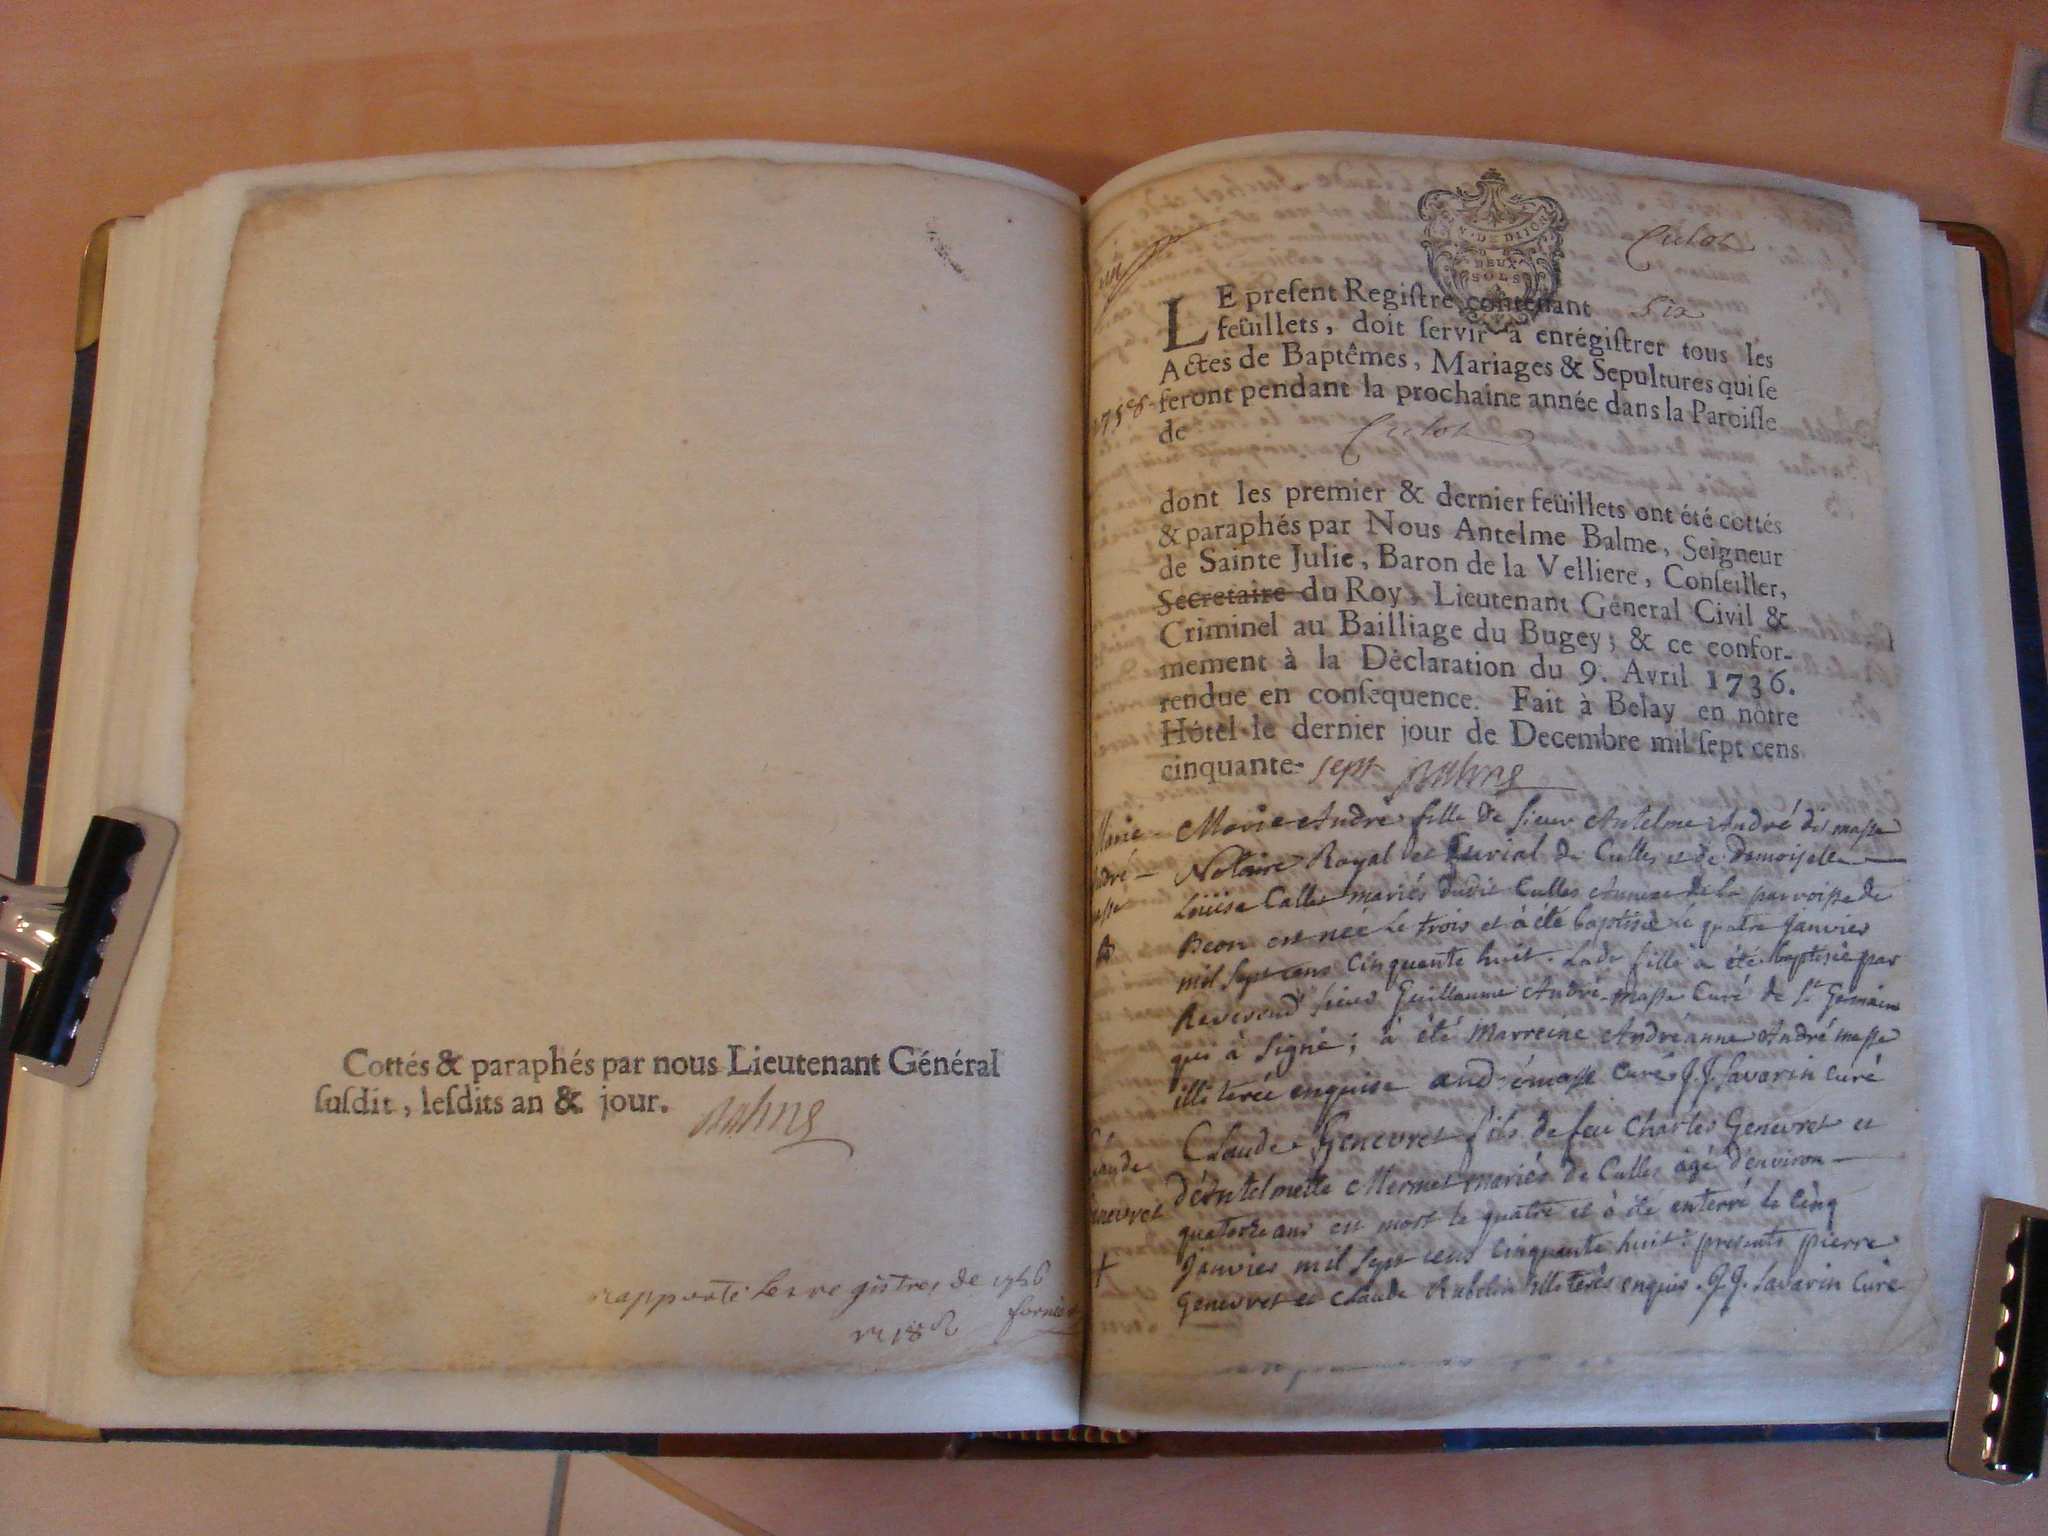 Cottés & paraphés par nous Lieutenant Général
susdit, lesdits an & jour. Balme
rapporté les registres de
Culoz
GEN. DE DIJON
DEUX
SOLS
LE present Registre contenant six
feüillets, doit servir à enrégistrer tous les
Actes de Baptêmes, Mariages & Sepultures qui se
1758. feront pendant la prochaine année dans la Paroisse
de Culoz
dont les premier & dernier feüillets ont été cottés
& paraphés par Nous Antelme Balme, Seigneur
de Sainte Julie, Baron de la Velliere, Conseiller,
Secretaire du Roy, Lieutenant Géneral Civil &
Criminel au Bailliage du Bugey; & ce confor-
mement à la Déclaration du 9. Avril 1736.
rendue en consequence. Fait à Belay en nôtre
Hôtel le dernier jour de Decembre mil sept cens
cinquante- sept Balme
Marie Marie André fille de sieur Antelme André dis masse
André Notaire Royal et Curial de Culles et de demoiselle
masse Loüise Callet mariés dudit Culles Annexe de la parroisse de
Beon est née le trois et à été baptisée le quatre janvier
mil sept cens cinquante huit. Lade fille à été baptisée par
Reverend sieur Guillaume André-masse Curé de St Germain
qui à signé; à été marreine Andréanne André masse
illiterée enquise andrémasse curé J.J. Savarin curé
Claude Claude Genevret fils de feu Charles Genevret et
d'Antelmette Mermet mariés de Culles agé d'environ
Genevret quatorze ans est mort le quatre et à été enterré le cinq
+ Janvier mil sept cens cinquante huit: presents pierre
Genevret et Claude Rubelin illiterés enquis. J.J. Savarin Curé